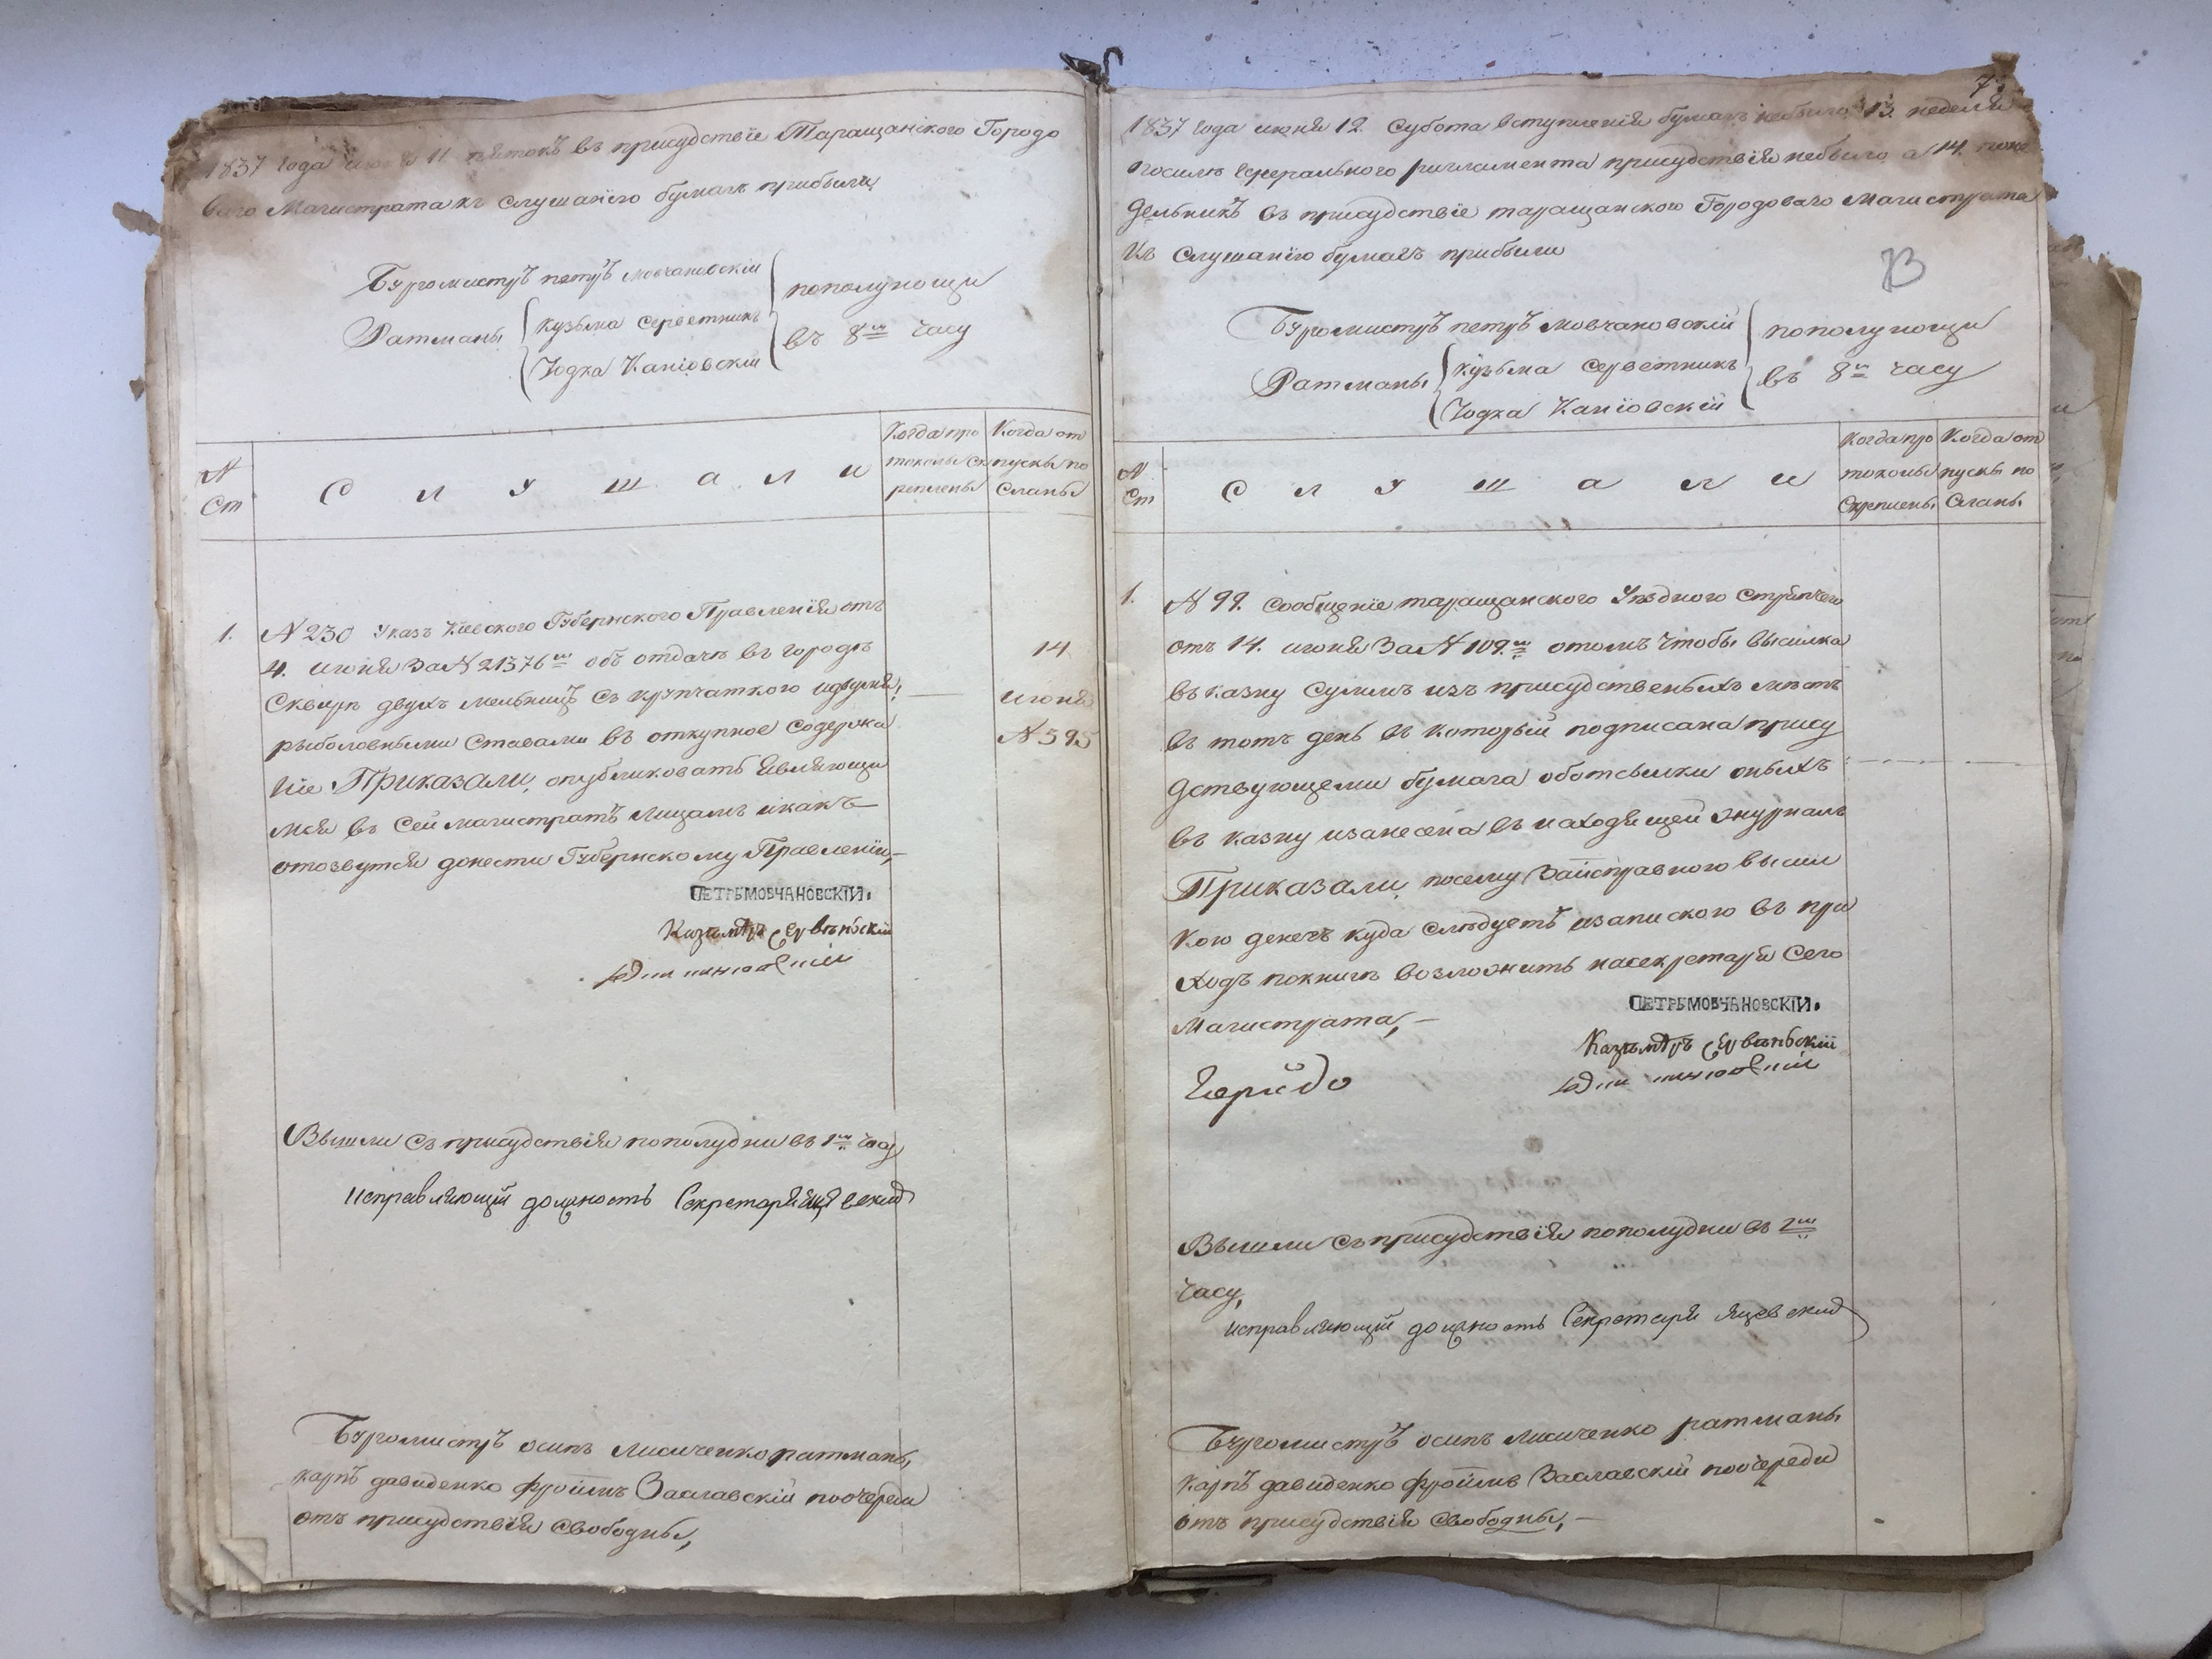 1837 года июня 11 пятокъ въ присудствіе Таращанского Городо
ваго Магистрата къ слушанію бумагъ прибыли
Бургомистръ петръ мовчановскій
Ратманы
кузьма серветникъ
Іодка Каніовскій
пополунощи
въ 8м часу
N
Ст
С л у ш а л и
Когда про
токолы ск
реплены
Когда от
пуски по
сланы
1.
N 230 Указъ Кіевского Губернского Правленія отъ
4. июня За N 21376м объ отдачи въ городѣ
Сквирѣ двухъ мельницъ съ крупчаткою идвумя,
рыболовными ставами въ откупное содержа
ніе Приказали, опубликовать являющи
мся въ сей магистратъ лицамъ икакъ
отозвутся донести Губернскому Правленію,—
14
июня
N 595
ПЕТРЪ МОВЧАНОВСКІЙ.
Вышли съ присудствія пополудни въ 1м часу
исправляющій должность Секретаря Яцевскій
Бургомистръ осипъ лисиченко ратманы,
карпъ давиденко фроимъ Заславскій поочереди
отъ присудствія свободны,
73
1837 года июня 12. Субота вступленія бумагъ небыло, 13. неделя
посилѣ генерального регламента присудствія небыло а 14. поне
дельникъ въ присудствіе таращанского Городоваго Магистрата
къ слушанію бумагъ прибыли
73
Бургомистръ петръ мовчановскій
Ратманы
кузьма серветникъ
Іодка Каніовскій
пополунощи
въ 8м часу
N
Ст
С л у ш а л и
когда про
токолы
скреплены,
Когда от
пуски по
сланы.
1.
N 99. Сообщеніе таращанского Уѣздного Стряпчего
отъ 14. июня За N 109.м отомъ чтобы высилка
въ казну суммъ изъ присудственыхъ мѣстъ
въ тотъ день въ который подписана прису
дствующеми бумага оботсылки оныхъ
въ казну изанесена въ находящей журналъ
Приказали, посему Заисправного высил
кою денегъ куда слѣдуетъ изапискою въ при
ходъ покнигѣ возложить насекретаря сего
Магистрата,—
ПЕТРЪ МОВЧАНОВСКІЙ.
Вышли съ присудствія пополудни въ 2м
часу,
исправляющій должность Секретаря Яцевскій
Бургомистръ осипъ лисиченко ратманы
карпъ давиденко фроимъ Заславскій поочереди
отъ присудствія свободны,—